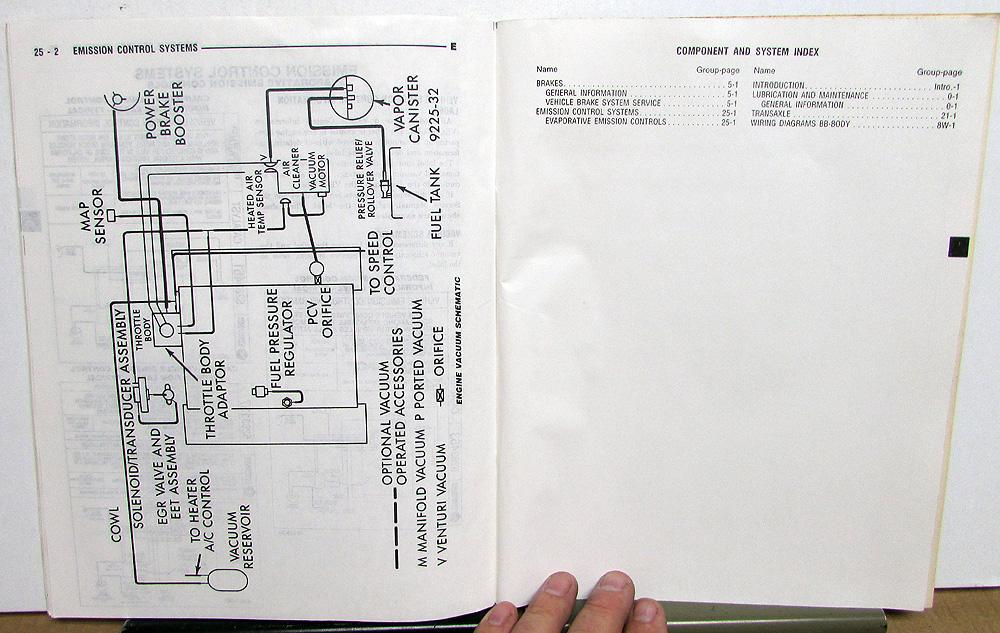 25 - 2 EMISSION CONTROL SYSTEMS
E
POWER
BRAKE
BOOSTER
VAPOR
CANISTER
9225-32
MAP
SENSOR
HEATED AIR
TEMP SENSOR
V
AIR
CLEANER
VACUUM
MOTOR
PRESSURE RELIEF/
ROLLOVER VALVE
FUEL TANK
TO SPEED
CONTROL
COWL
SOLENOID/TRANSDUCER ASSEMBLY
THROTTLE
BODY
PCV
ORIFICE
FUEL PRESSURE
REGULATOR
THROTTLE BODY
ADAPTOR
EGR VALVE AND
EET ASSEMBLY
TO HEATER
A/C CONTROL
VACUUM
RESERVOIR
OPTIONAL VACUUM
OPERATED ACCESSORIES
M MANIFOLD VACUUM P PORTED VACUUM
V VENTURI VACUUM ORIFICE
ENGINE VACUUM SCHEMATIC
COMPONENT AND SYSTEM INDEX
Name Group-page
BRAKES 5-1
GENERAL INFORMATION 5-1
VEHICLE BRAKE SYSTEM SERVICE 5-1
EMISSION CONTROL SYSTEMS 25-1
EVAPORATIVE EMISSION CONTROLS 25-1
Name Group-page
INTRODUCTION Intro.-1
LUBRICATION AND MAINTENANCE 0-1
GENERAL INFORMATION 0-1
TRANSAXLE 21-1
WIRING DIAGRAMS BB-BODY 8W-1